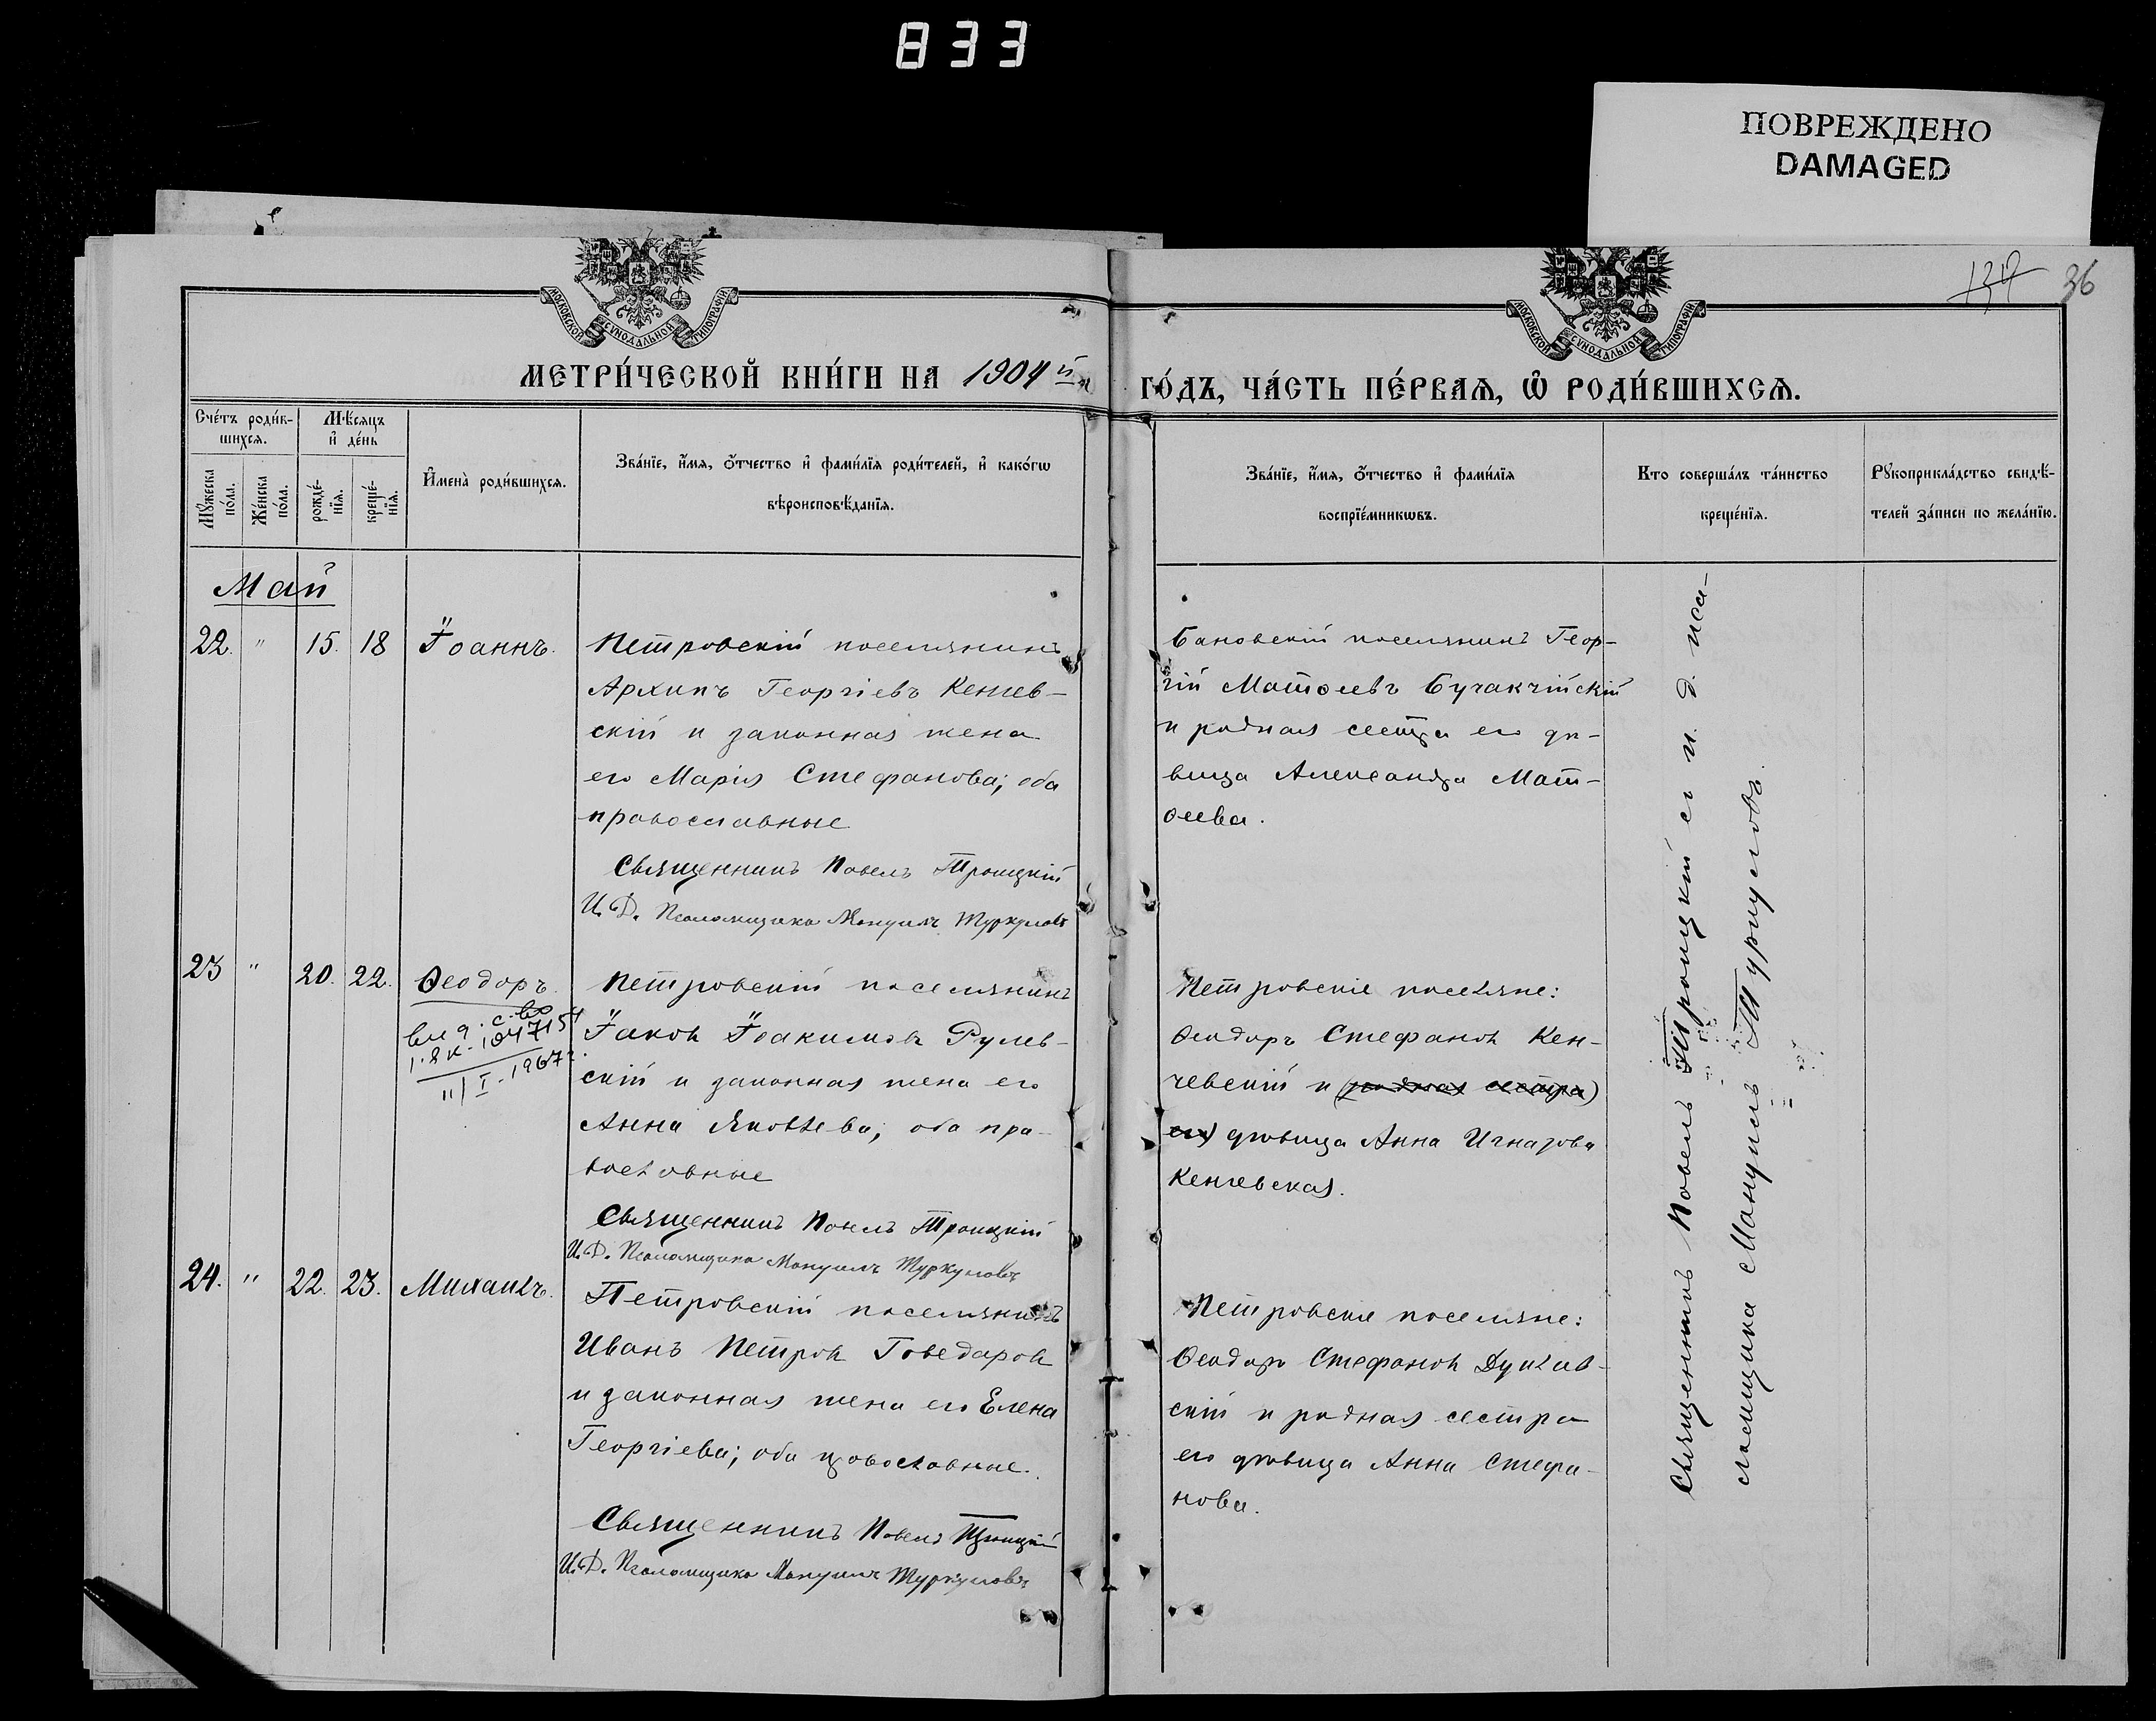 833
ПОВРЕЖДЕНО
DAMAGED
36
МОСКОВСКОЙ СѴНОДАЛЬНОЙ ТИПОГРАФІИ
МОСКОВСКОЙ СѴНОДАЛЬНОЙ ТИПОГРАФІИ
МЕТРИ́ЧЕСКОЙ КНИ́ГИ НА 1904 й
ГО́ДЪ, ЧА́СТЬ ПЕ́РВАѦ, Ѡ҆ РОДИ́ВШИХСѦ.
Сче́тъ роди́в-
шихсѧ.
Мѣ́сяцъ
и҆ де́нь
Мꙋ́жеска
по́ла.
Же́нска
по́ла.
рожде́-
нїѧ.
креще́-
нїѧ.
И҆мена̀ роди́вшихсѧ.
Зва́нїе, и҆́мѧ, ѻ҆́тчество и҆ фами́лїѧ роди́телей, и҆ како́гѡ
вѣроисповѣ́данїѧ.
Зва́нїе, и҆́мѧ, ѻ҆́тчество и҆ фами́лїѧ
воспрїе́мникѡвъ.
Кто соверша́лъ та́инство
креще́нїѧ.
Рꙋкоприкла́дство свидѣ́-
телей за́писи по жела́нїю.
Май
22. " 15. 18 Іоаннъ.
Петровскій поселянинъ
Архипъ Георгіевъ Кенчев-
скій и законная жена
его Марія Стефанова; оба
православные
Священникъ Павелъ Троицкій
И. Д. Псаломщика Мануилъ Туркуловъ
Бановскій поселянинъ Геор-
гій Матѳеевъ Бучакчійскій
и родная сестра его дѣ-
вица Александра Мат-
ѳеева.
23 " 20. 22. Ѳеодоръ.
с-во
11/I-1967г.
Петровскій поселянинъ
Іаковъ Іоакимовъ Рулев-
скій и законная жена его
Анна Яковлева; оба пра-
вославные
Священникъ Павелъ Троицкій
И. Д. Псаломщика Мануилъ Туркуловъ
Петровскіе поселяне:
Ѳеодоръ Стефановъ Кен-
чевскій и (родная сестра)
его) дѣвица Анна Игнатова
Кенчевская.
24. " 22. 23. Михаилъ.
Петровскій поселянинъ
Иванъ Петровъ Говедаровъ
и законная жена его Елена
Георгіева; оба православные.
Священникъ Павелъ Троицкій
И. Д. Псаломщика Мануилъ Туркуловъ
Петровскіе поселяне:
Ѳеодоръ Стефановъ
скій и родная сестра
его дѣвица Анна Стефа-
нова.
Священникъ Павелъ Троицкій съ и. д. пса-
ломщика Мануилъ Туркуловъ.